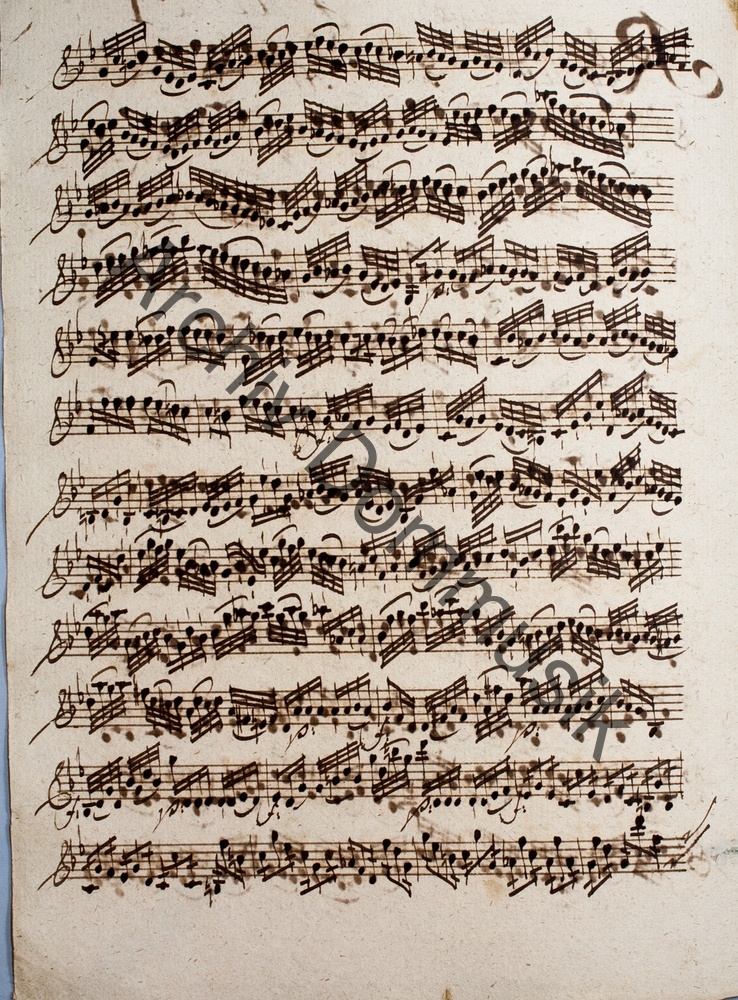 Archiv Dommusik
p:
p:
f:
p:
f:
p:
f:
p: